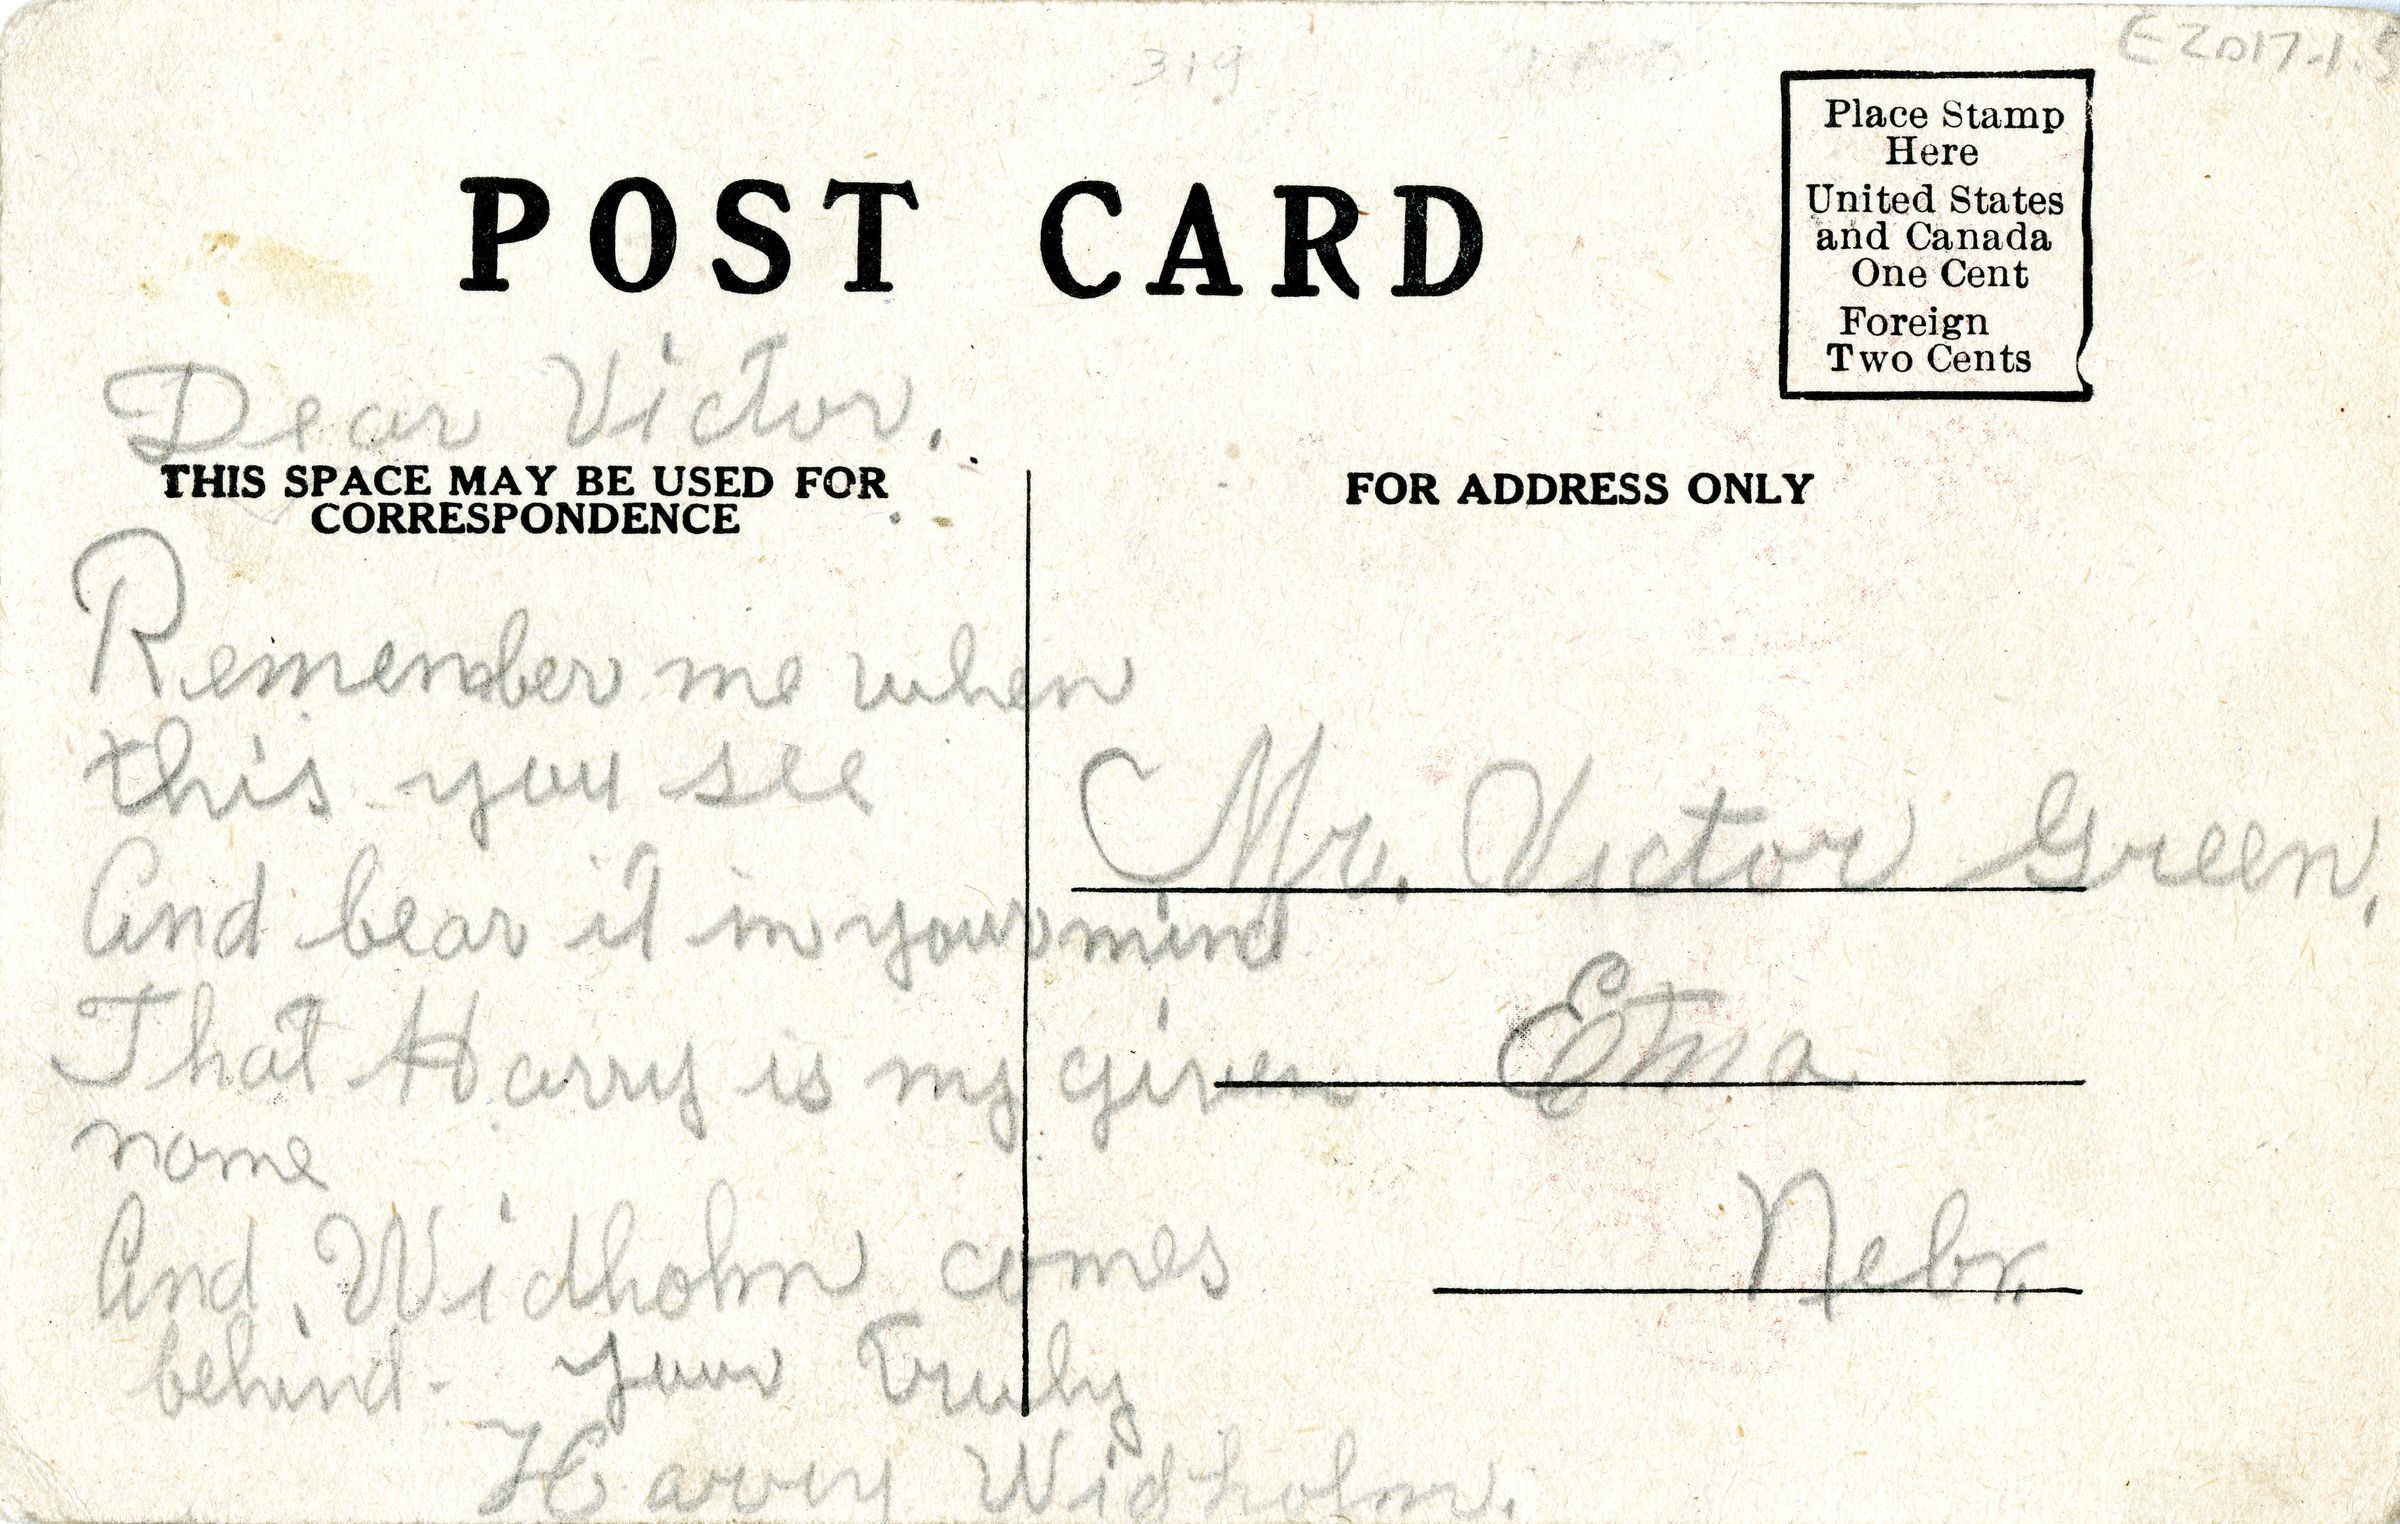 319
E2017.1.5
POST CARD
Place Stamp
Here
United States
and Canada
One Cent
Foreign
Two Cents
Dear Victor.
THIS SPACE MAY BE USED FOR
CORRESPONDENCE
FOR ADDRESS ONLY
Remember me when
this you see
And bear it in your mind
That Harry is my given
name
And, Widholm comes
behind. Your Truly
Harry Widholm.
Mr. Victor Green,
Etna
Nebr.